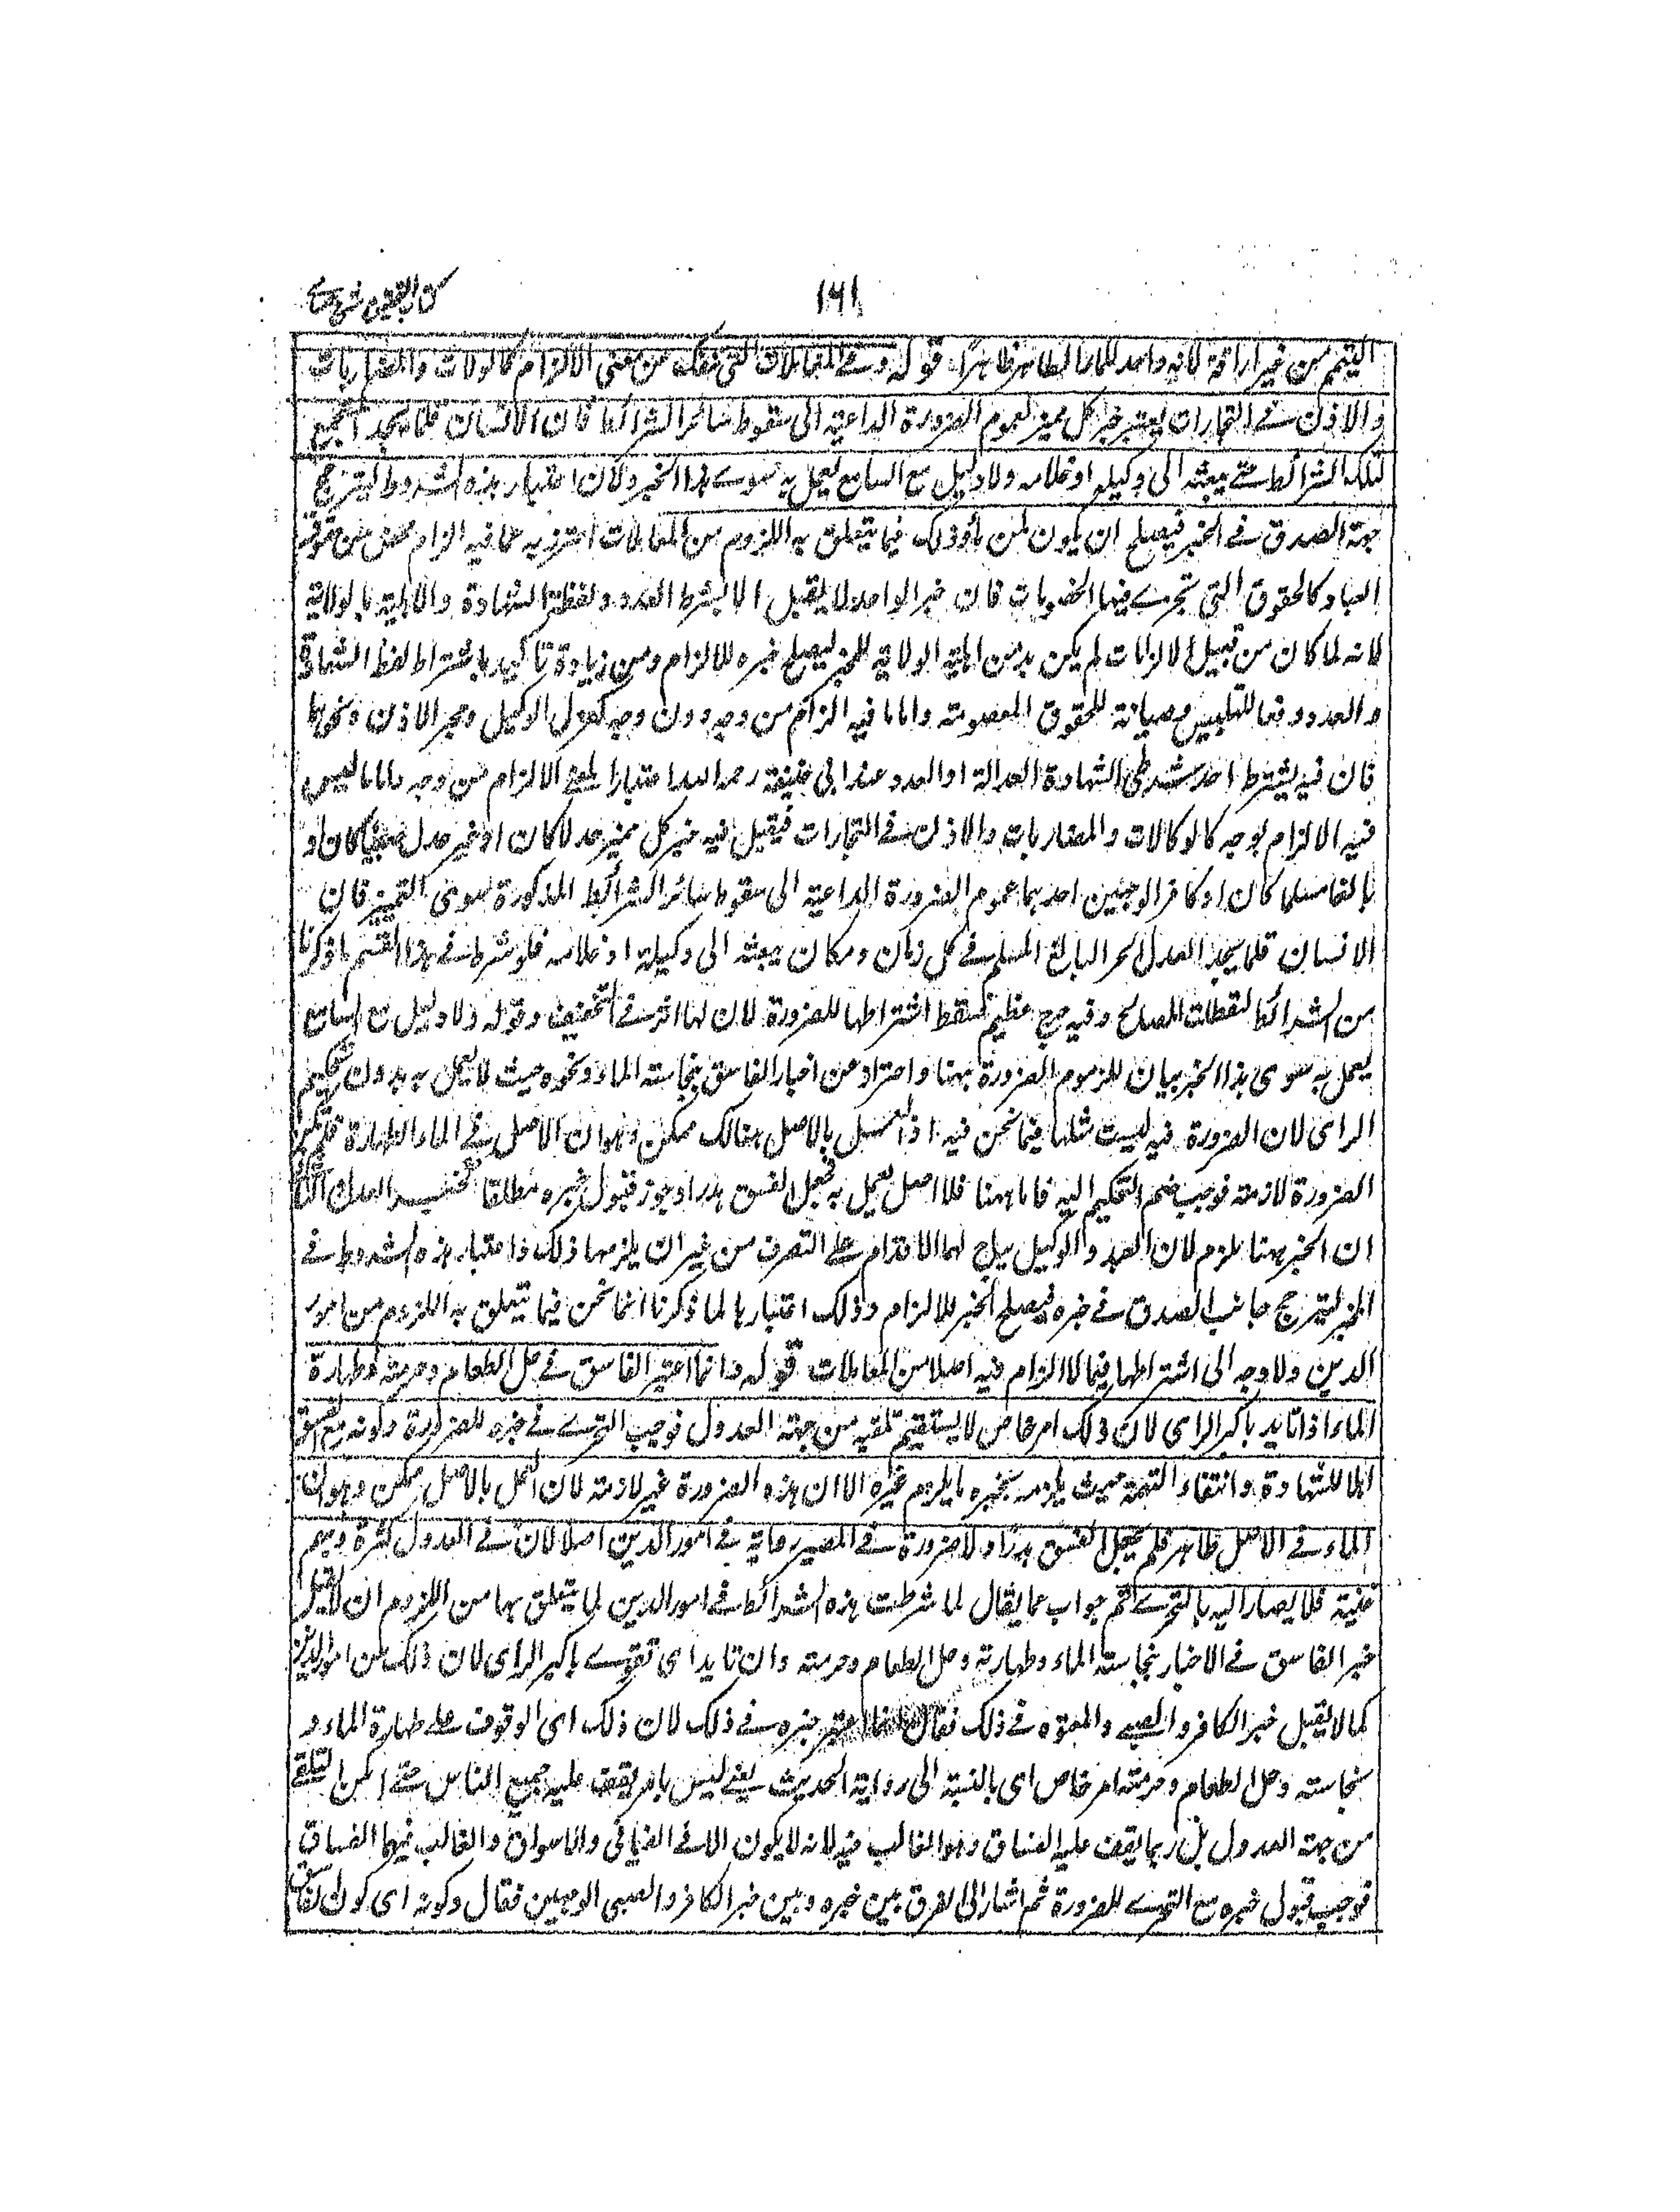 ١٦١
كتاب التحقيق شرح حسامي
التيمم من غير اراقة لانه واجد للماء الطاهر ظاهرا قوله وفي المعاملات التي تنفك عن معنى الالزام كالوكالات والمضاربات
والاذن في التجارات يعتبر خبر كل مميز لعموم الضرورة الداعية الى سقوط سائر الشرائط فان الانسان قلما يجد المستجمع
لتلك الشرائط حتى يبعثه الى وكيله او غلامه ولا دليل مع السامع يعمل به سوى هذا الخبر ولان اعتبار هذه الشروط ليترجح
جهة الصدق في الخبر فيصلح ان يكون ملزما وذلك فيما يتعلق به اللزوم من المعاملات احترز به عما فيه الزام محض من حقوق
العباد كالحقوق التي تجري فيها الخصومات فان خبر الواحد لا يقبل الا بشرط العدد ولفظة الشهادة والاهلية بالولاية
لانه لما كان من قبيل الالزامات لم يكن بد من اهلية الولاية للمخبر ليصلح خبره للالزام ومن زيادة تاكيد باشتراط لفظ الشهادة
والعدد دفعا للتلبيس وصيانة للحقوق المعصومة واما ما فيه الزام من وجه دون وجه كعزل الوكيل وحجر الماذون ونحوهما
فان فيه يشترط احد شطري الشهادة العدالة او العدد عند ابي حنيفة رحمه الله اعتبارا لمعنى الالزام من وجه واما ما ليس
فيه الالزام بوجه كالوكالات والمضاربات والاذن في التجارات فيقبل فيه خبر كل مميز عدلا كان او غير عدل صبيا كان او
بالغا مسلما كان او كافرا لوجهين احدهما عموم الضرورة الداعية الى سقوط سائر الشرائط المذكورة سوى التمييز فان
الانسان قلما يجد العدل الحر البالغ المسلم في كل زمان ومكان يبعثه الى وكيله او غلامه فلو شرط في هذا القسم ما ذكرنا
من الشرائط لتعطلت المصالح وفيه حرج عظيم فسقط اشتراطها للضرورة لان لها اثرا في التخفيف وقوله ولا دليل مع السامع
يعمل به سوى هذا الخبر بيان للزوم الضرورة ههنا واحتراز عن اخبار الفاسق بنجاسة الماء ونحوه حيث لا يعمل به بدون تحكيم
الراى لان الضرورة فيه ليست مثلها فيما نحن فيه اذ العمل بالاصل هنالك ممكن وهو ان الاصل في الماء الطهارة فلم تكن
الضرورة لازمة فوجب ضم التحكيم اليه فاما ههنا فلا اصل يعمل به فجعل الفسق هدرا وجوز قبول خبره مطلقا كخبر العدل الثاني
ان الخبر ههنا غير ملزم لان العبد والوكيل يباح لهما الاقدام على التصرف من غير ان يلزمهما ذلك واعتبار هذه الشروط في
الخبر ليترجح جانب الصدق في خبره فيصلح الخبر للالزام وذلك اعتبارها لما ذكرنا انما نحن فيما يتعلق به اللزوم من امور
الدين ولا وجه الى اشتراطها فيما لا الزام فيه اصلا من المعاملات قوله وانما اعتبر الفاسق في حل الطعام وحرمته وطهارة
الماء اذا تايد باكبر الراى لان ذلك امر خاص لا يستقيم تلقيه من جهة العدول فوجب التحري في خبره للضرورة وكونه مع الفسق
اهلا للشهادة وانتفاء التهمة حيث يلزمه بخبره ما يلزم غيره الا ان هذه الضرورة غير لازمة لان العمل بالاصل ممكن وهو ان
الماء في الاصل طاهر فلم يجعل الفسق هدرا ولا ضرورة في المصير الى رواية في امور الدين اصلا لان في العدول كثرة وبهم
غنية فلا يصار اليه بالتحري ثم جواب عما يقال لما شرطت هذه الشرائط في امور الدين لما يتعلق بها من اللزوم ان لا يقبل
خبر الفاسق في الاخبار بنجاسة الماء وطهارته وحل الطعام وحرمته وان تايد اى تقوى باكبر الراى لان ذلك من امور الدين
كما لا يقبل خبر الكافر والصبي والمعتوه في ذلك فقال انما اعتبر خبره في ذلك لان ذلك اى الوقوف على طهارة الماء و
نجاسته وحل الطعام وحرمته امر خاص اى بالنسبة الى رواية الحديث يعني ليس بامر يقف عليه جميع الناس حتى امكن التلقي
من جهة العدول بل ربما يقف عليه الفساق وهو الغالب فيه لانه لا يكون الا في الفيافي والاسواق والغالب فيهما الفساق
فوجب قبول خبره مع التحري للضرورة ثم اشار الى الفرق بين خبره وبين خبر الكافر والصبي الوجهين فقال وكونه اى كون الفاسق